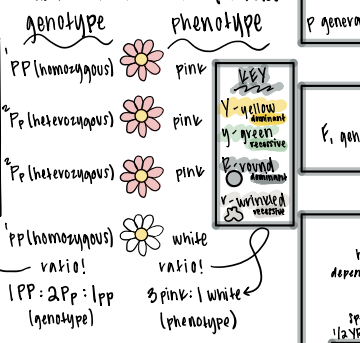 genotype phenotype
1 PP (homozygous) pink
2 Pp (heterozygous) pink
2 Pp (heterozygous) pink
1 pp (homozygous) white
ratio! ratio!
1PP : 2Pp : 1pp 3 pink : 1 white
(genotype) (phenotype)
KEY
Y - yellow
dominant
y - green
recessive
R - round
dominant
r - wrinkled
recessive
P genera
F1 gen
depen
1/2 YP